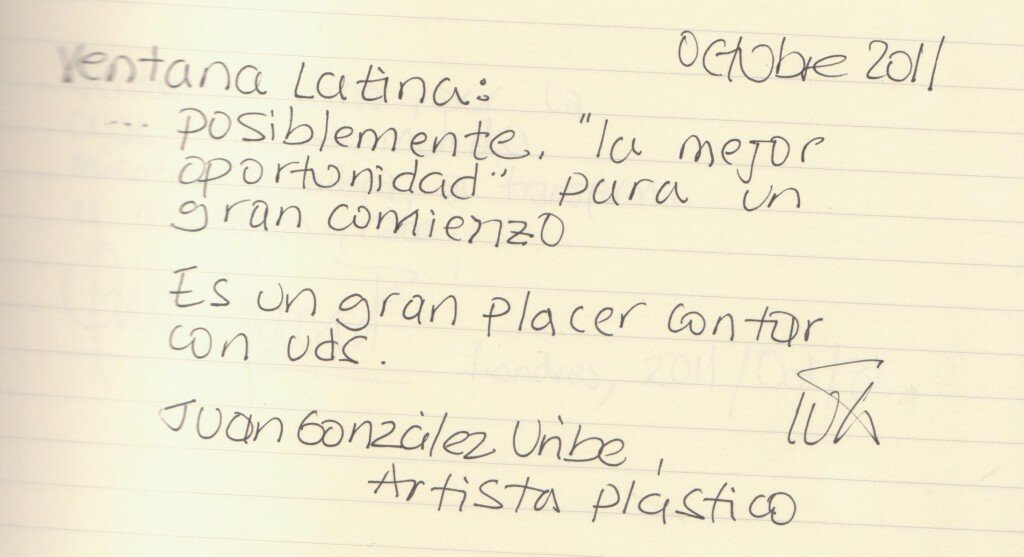 Octubre 2011
Ventana Latina:
... posiblemente, "la mejor
oportunidad" para un
gran comienzo
Es un gran placer contar
con uds.
Juan González Uribe,
Artista plástico